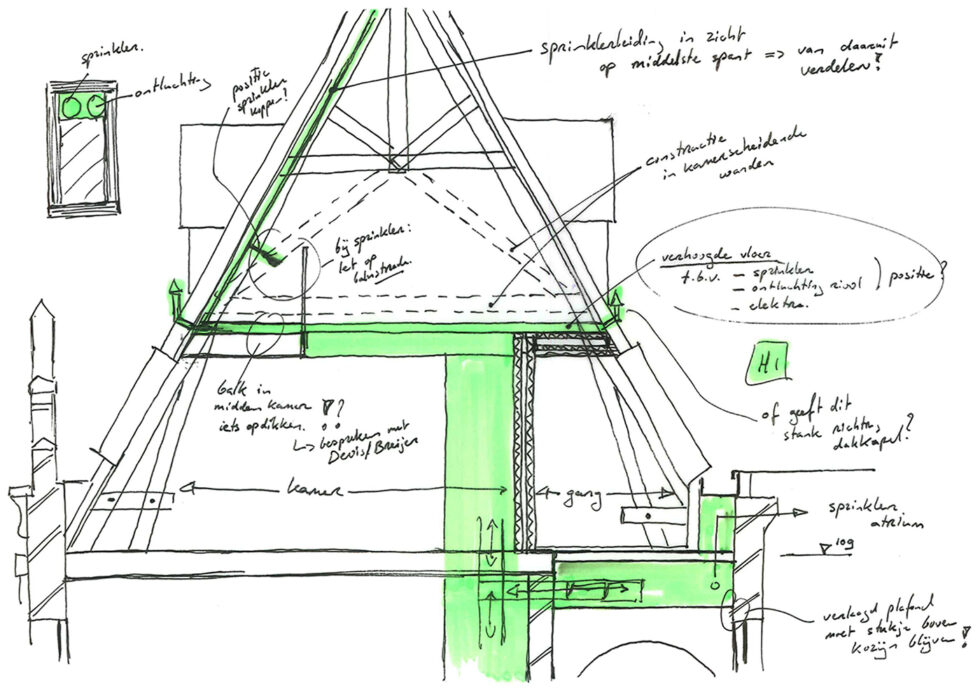 sprinkler.
ontluchting
positie
sprinkler
koppen?
sprinklerleiding in zicht
op middelste spant => van daaruit
verdelen!
constructie
in kamerscheidende
wanden
bij sprinkler:
let op
verhoogde vloer
t.b.v. – sprinkler
– ontluchting riool
– elektra.
positie?
H1
balk in
midden kamer !?
iets opdikken.
↳ bespreken met
Devis/Breijer
of geeft dit
stank richting
dakkapel?
kamer
gang
sprinkler
atrium
109
verlaagd plafond
moet stukje boven
kozijn blijven!